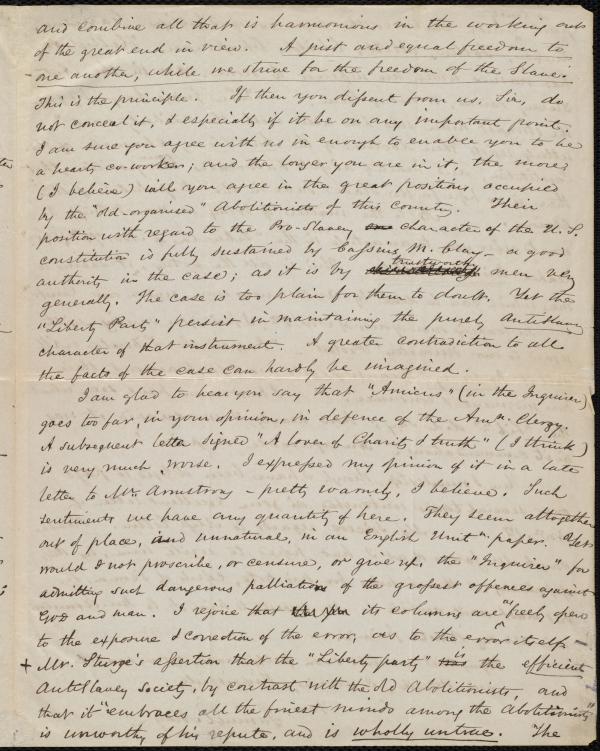 and combine all that is harmonious in the working out
of the great end in view. A just and equal freedom to
one another, while we strive for the freedom of the Slave.
This is the principle. If then you dissent from us, Sir, do
not conceal it, & especially if it be on any important point.
I am sure you agree with us in enough to enable you to be
a hearty co-worker; and the longer you are in it, the more
(I believe) will you agree in the great positions occupied
by the "old-organised" Abolitionists of this country. Their
position with regard to the Pro-Slavery character of the U.S.
constitution is fully sustained by Cassius M. Clay - a good
authority in the case; as it is by trustworthy men very
generally. The case is too plain for them to doubt. Yet the
"Liberty Party" persist in maintaining the purely AntiSlavery
character of that instrument. A greater contradiction to all
the facts of the case can hardly be imagined.
I am glad to hear you say that "Amicus" (in the Inquirer)
goes too far, in your opinion, in defence of the Amn. Clergy.
A subsequent letter signed "A lover of Charity & truth" (I think)
is very much worse. I expressed my opinion of it in a late
letter to Mr. Armstrong - pretty warmly, I believe. Such
sentiments we have any quantity of here. They seem altogether
out of place, and unnatural, in an English Unitn. paper. Yet
would I not proscribe, or censure, or give up, the "Inquirer" for
admitting such dangerous palliations of the grossest offences against
God and man. I rejoice that its columns are "freely open
to the exposure & correction of the error, as to the error itself -
+ Mr. Sturge's assertion that the "Liberty party" is the efficient
AntiSlavery Society, by contrast with the old Abolitionists, and
that it "embraces all the finest minds among the Abolitionists"
is unworthy of his repute, and is wholly untrue. The